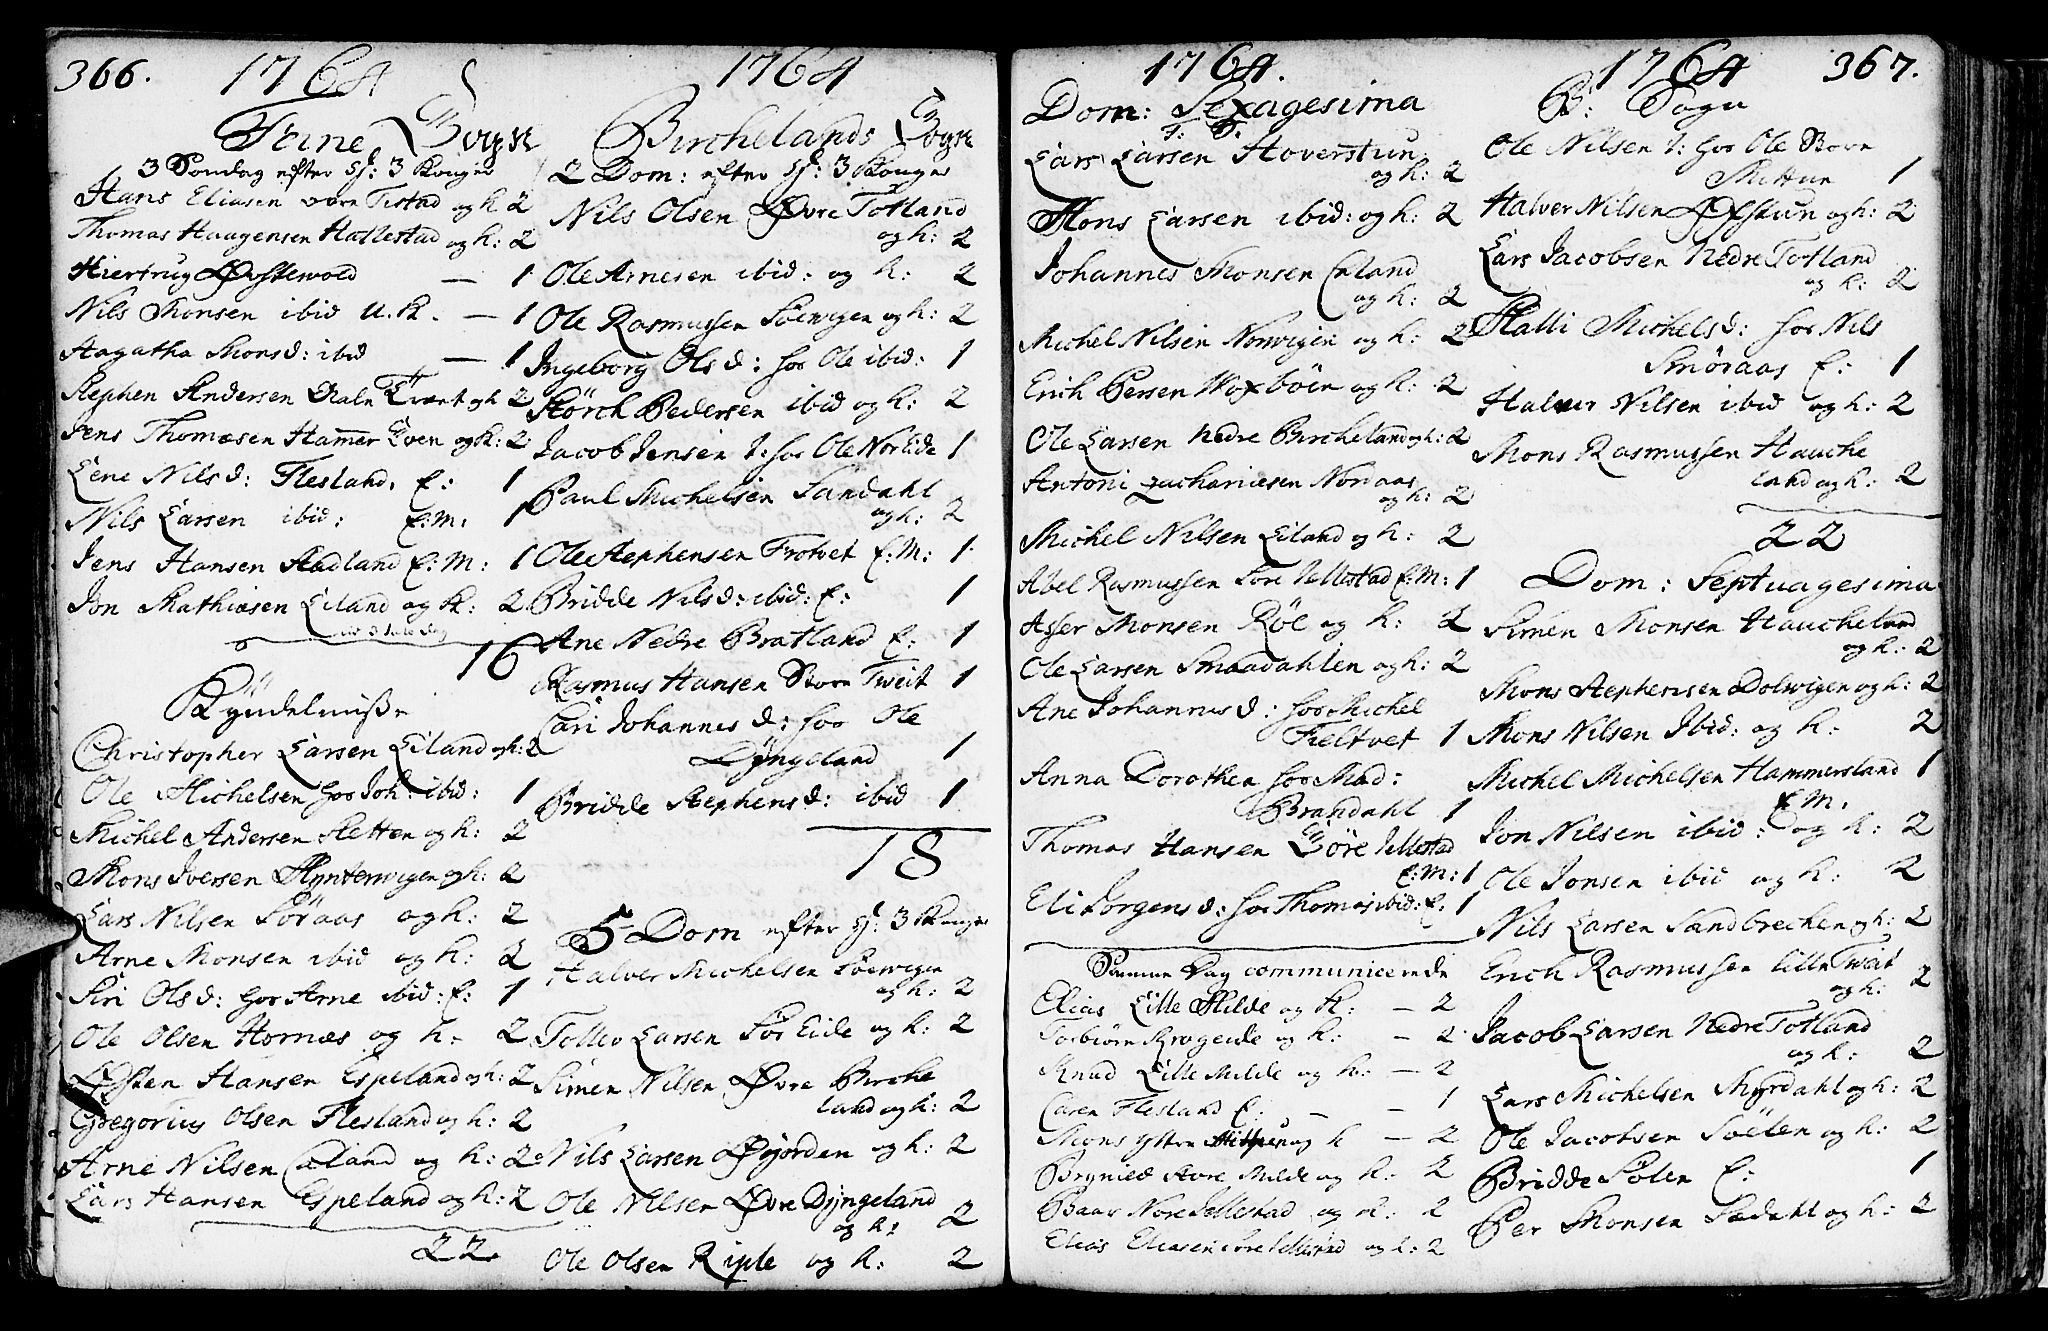 366.
1764
Fane Sogn
3 Søndag efter H: 3 Konger
Hans Eliasen øvre Titlestad og h 2
Thomas Haagensen Hatlestad og h: 2
Hiertrug Øvstevold — 1
Nils Monsen ibid U. K. — 1
Aagatha Monsd: ibid — 1
Stephen Andersen Dale Qvært og h 2
Jens Thomæsen Hammer Qven og K: 2
Lene Nilsd: Flesland. E: 1
Nils Larsen ibid: E:M: 1
Jens Hansen Stadland E:M: 1
Jon Mathiæsen Liland og K: 2
16
Kyndelmisse
Christopher Larsen Liland og h: 2
Ole Michelsen hos Joh: ibid: 1
Michel Andersen Sletten og h: 2
Mons Iversen Skynterwigen og h: 2
Lars Nilsen Søraas og h: 2
Arne Monsen ibid og h: 2
Siri Olsd: hos Arne ibid: E: 1
Ole Olsen Hornæs og h. 2
Østen Hansen Espeland og h: 2
Gregorius Olsen Flesland og h: 2
Arne Nilsen Caland og h: 2
Lars Hansen Espeland og h: 2
22.
1764
Birchelands Sogn
2 Dom: efter H: 3 Konger
Nils Olsen Øvre Totland
og h: 2
Ole Arnesen ibid: og h: 2
Ole Rasmussen Søewigen og h: 2
Ingeborg Olsd: hos Ole ibid: 1
Størch Pedersen ibid og h: 2
Jacob Jensen t: hos Ole Nordeide 1
Paul Michelsen Sandahl
og h: 2
Ole Stephensen Trotvet E:M: 1
Bridde Nilsd: ibid: E: 1
Ane Nedre Bratland E: 1
Rasmus Hansen Store Tveit 1
Cari Johannesd: hos Ole
Dyngeland 1
Bridde Stephensd: ibid 1
18
5 Dom efter H: 3 Konger
Halver Michelsen Søewigen
og h: 2
Tollev Larsen Sør Eide og h: 2
Simen Nilsen Øvre Birche
land og h: 2
Nils Larsen Øyjorden og h: 2
Ole Nilsen Øvre Dyngeland
og h: 2
Ole Olsen Riple og h: 2
1764.
Dom: Sexagesima
F: S.
Lars Larsen Hoverstun
og h: 2
Mons Larsen ibid: og h: 2
Johannes Monsen Caland
og h: 2
Michel Nilsen Norwigen og h: 2
Erich Persen Woxbøen og h: 2
Ole Larsen Nedre Bircheland og h: 2
Antoni Zachariesen Noraas
og h: 2
Michel Nilsen Liland og h: 2
Abel Rasmussen Søre Jellestad E:M: 1
Asser Monsen Røl og h: 2
Ole Larsen Smaadahlen og h: 2
Ane Johannesd: hos Michel
Fieltvet 1
Anna Dorothea hos Mad:
Brandahl 1
Thomas Hansen Søre Jellestad
E:M: 1
Eli Jørgensd: hos Thomas ibid: E: 1
Samme Dag communicerede
Elias Lille Milde og K: — 2
Torbiørn Krogeide og h: — 2
Knud Lille Milde og h: — 2
Caren Flesland E: — — 1
Mons Yttre og h — 2
Brynild Store Milde og h: 2
Baar Nore Jellestad og h: 2
Elias Eliasen Søre Jellestad og h: 2
1764 367.
B: Sogn
Ole Nilsen t: hos Ole Store
Mittun 1
Halver Nilsen Øfstun og h: 2
Lars Jacobsen Nedre Totland
og h: 2
Malli Michelsd: hos Nils
Smøraas E: 1
Halver Nilsen ibid og h: 2
Mons Rasmussen Hauche
land og h: 2
22
Dom: Septuagesima
Simen Monsen Haucheland
og h: 2
Mons Stephensen Dolwigen og h: 2
Mons Nilsen Ibid: og h: 2
Michel Michelsen Hammersland 1
E.M.
Jon Nilsen ibid: og h: 2
Ole Jonsen ibid og h: 2
Nils Larsen Sandbrechen og h: 2
Erich Rasmussen lille Twæt
og h: 2
Jacob Larsen Nedre Totland
og h: 2
Lars Michelsen Myrdahl og h: 2
Ole Jacobsen Søelen og h: 2
Bridde Sølen E: 1
Per Monsen Sædahl og h: 2